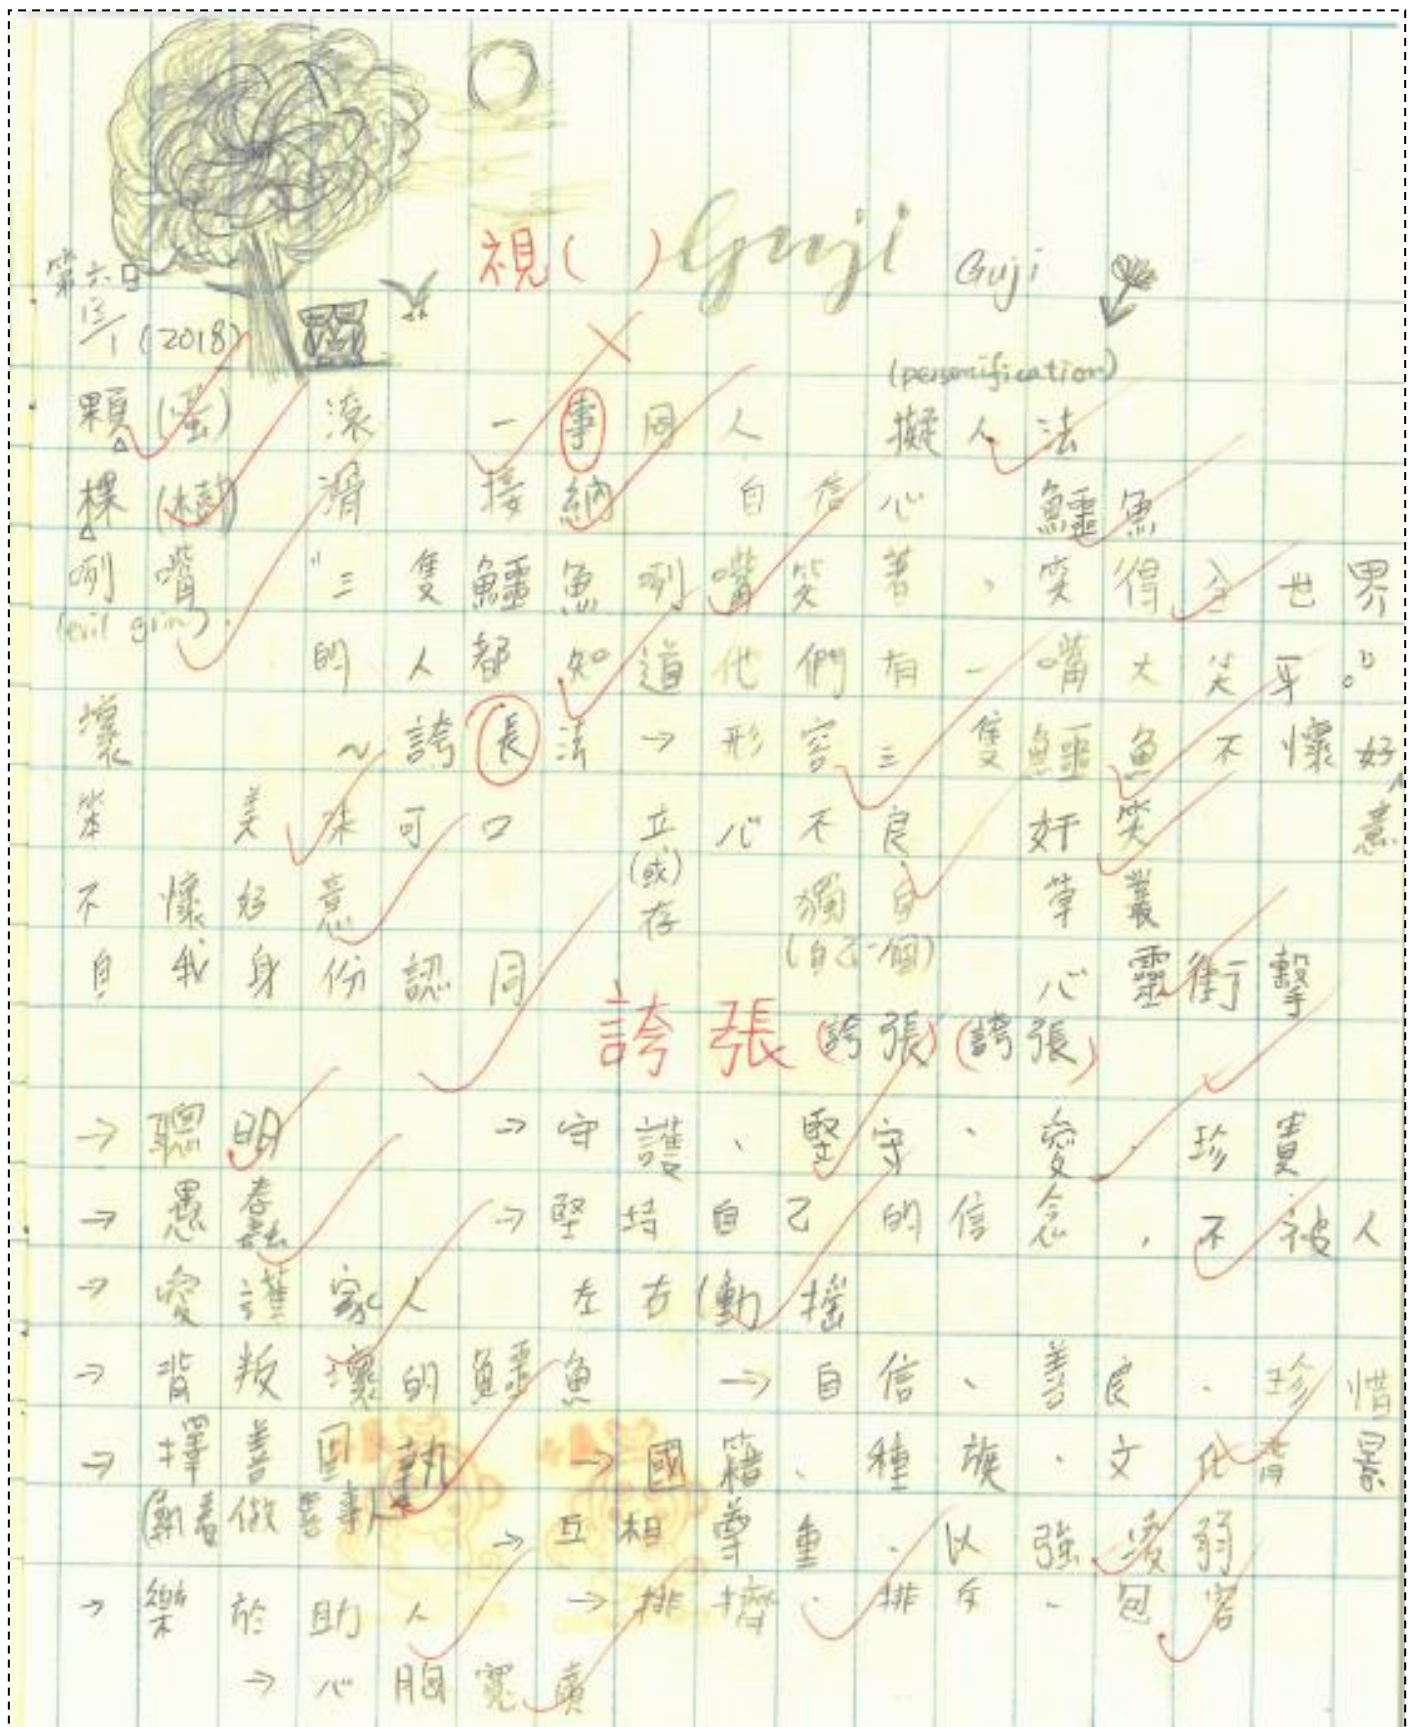 視( ) Guji Guji
第六日
15/1 (2018)
(personification)
顆(蛋) 滾 一事同人 擬人法
棵(樹) 滑 接納 自信心 鱷魚
咧嘴 "三隻鱷魚咧嘴笑著,笑得全世界
(evil grin).
的人都知道他們有一嘴大笑牙。"
壞 ~誇長法→形容三隻鱷魚不懷好意
笨 美味可口 立心不良 奸笑
(或)
不懷好意 存 獨自 草叢
(自己一個)
自我身份認同 心靈衝擊
誇張(誇張)(誇張)
→聰明 →守護、堅守、愛、珍貴
→愚蠢 →堅持自己的信念,不被人
→愛護家人 左右(動搖
→背叛壞的鱷魚 →自信、善良、珍惜
→擇善固執 →國籍、種族、文化背景
(執着做善事)
→互相尊重、以強凌弱
→樂於助人 →排擠、排斥、包容
→心胸寬廣